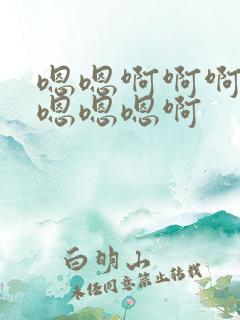 嗯嗯啊啊啊
嗯嗯嗯啊
白明山
未经同意禁止转载